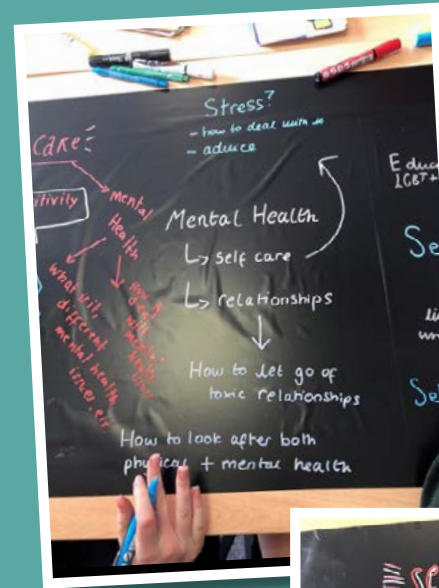 Stress?
- how to deal with
- advice
care:
itivity
mental
Health
what is it,
different
mental health
issues, etc
How to
deal
with
mental
health
issues
Mental Health
↳ self care
↳ relationships
How to let go of
toxic relationships
How to look after both
physical + mental health
Educ
LGBT+
Se
li
un
Se